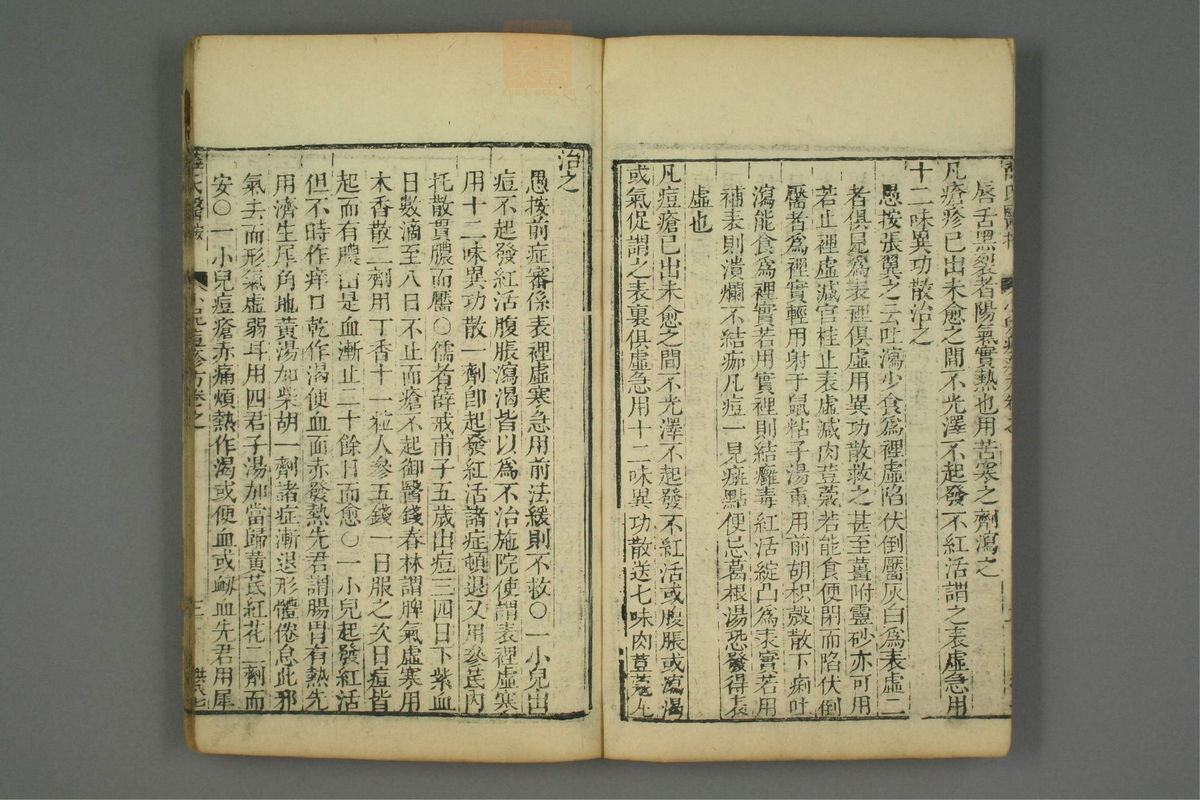 唇舌黑裂者陽氣實熱也用苦寒之劑瀉之
凡瘡疹已出未愈之間不光澤不起發不紅活謂之表虛急用
十二味異功散治之
愚按張翼之云吐瀉少食爲裡虛陷伏倒靨灰白爲表虛二
者俱見爲表裡俱虛用異功散救之甚至薑附靈砂亦可用
若止裡虛減官桂止表虛減肉荳蔻若能食便閉而陷伏倒
靨者爲裡實輕用射干鼠粘子湯重用前胡枳殼散下痢吐
瀉能食爲裡實若用實裡則結癰毒紅活綻凸爲表實若用
補表則潰爛不結痂凡痘一見斑點便忌葛根湯恐發得表
虛也
凡痘瘡已出未愈之間不光澤不起發不紅活或腹脹或瀉渴
或氣促謂之表裏俱虛急用十二味異功散送七味肉荳蔻丸
治之
愚按前症審係表裡虛寒急用前法緩則不救〇一小兒出
痘不起發紅活腹脹瀉渴皆以爲不治施院使謂表裡虛寒
用十二味異功散一劑卽起發紅活諸症頓退又用參芪內
托散貫膿而靨〇儒者薛戒甫子五歲出痘三四日下紫血
日數滴至八日不止而瘡不起御醫錢春林謂脾氣虛寒用
木香散二劑用丁香十一粒人參五錢一日服之次日痘皆
起而有膿由是血漸止二十餘日而愈〇一小兒起發紅活
但不時作痒口乾作渴便血面赤發熱先君謂腸胃有熱先
用濟生犀角地黃湯加柴胡一劑諸症漸退形體倦怠此邪
氣去而形氣虛弱耳用四君子湯加當歸黃芪紅花二劑而
安〇一小兒痘瘡赤痛煩熱作渴或便血或衂血先君用犀
薛氏醫按
小兒痘疹方卷之一
三